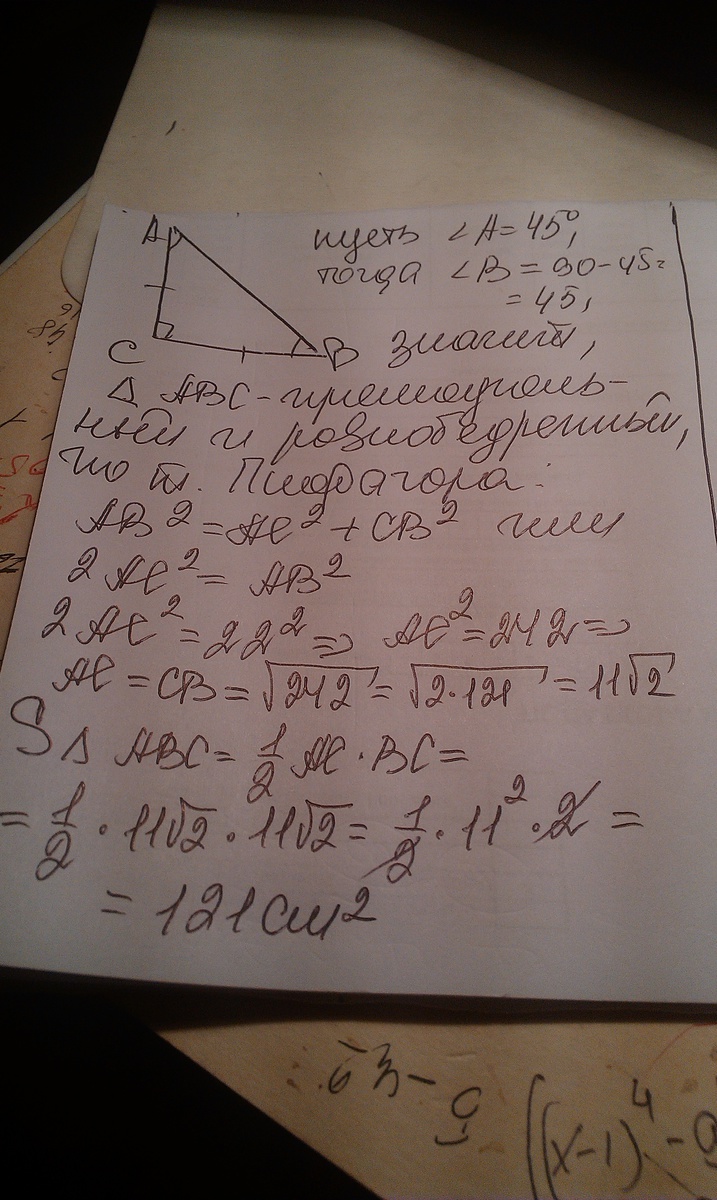 A
C
B
пусть ∠A = 45°,
тогда ∠B = 90 - 45 =
= 45,
значит,
Δ ABC - прямоуголь-
ный и равнобедренный,
по т. Пифагора:
AB² = AC² + CB² или
2 AC² = AB²
2 AC² = 22² => AC² = 242 =>
AC = CB = √242 = √2·121 = 11√2
S Δ ABC = 1/2 AC · BC =
= 1/2 · 11√2 · 11√2 = 1/2 · 11² · 2 =
= 121 см²
((x-1)⁴ - 9